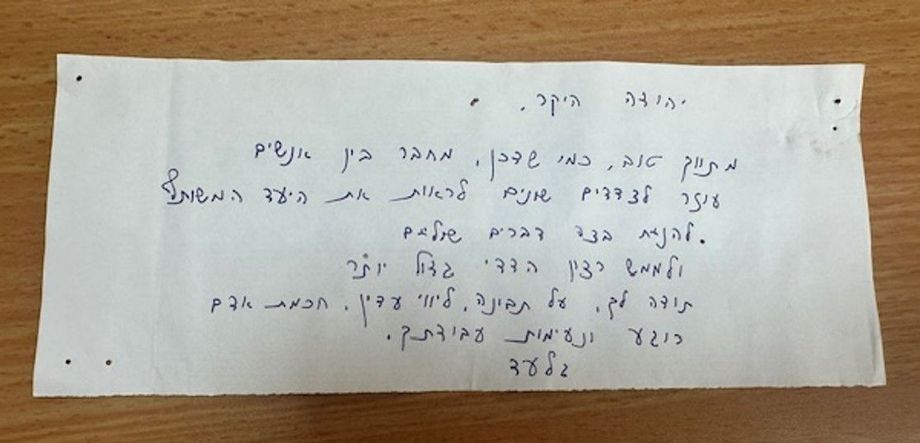 יהודה היקר,
מתווך טוב, כמי שדכן, מחבר בין אנשים
עוזר לצדדים שונים לראות את היעד המשותף
להניח בצד דברים שוליים.
ולממש רצון הדדי גדול יותר
תודה לך, על תבינה, ליווי עדין, חכמת אדם
רוגע ונעימות עבודתך.
גלעד